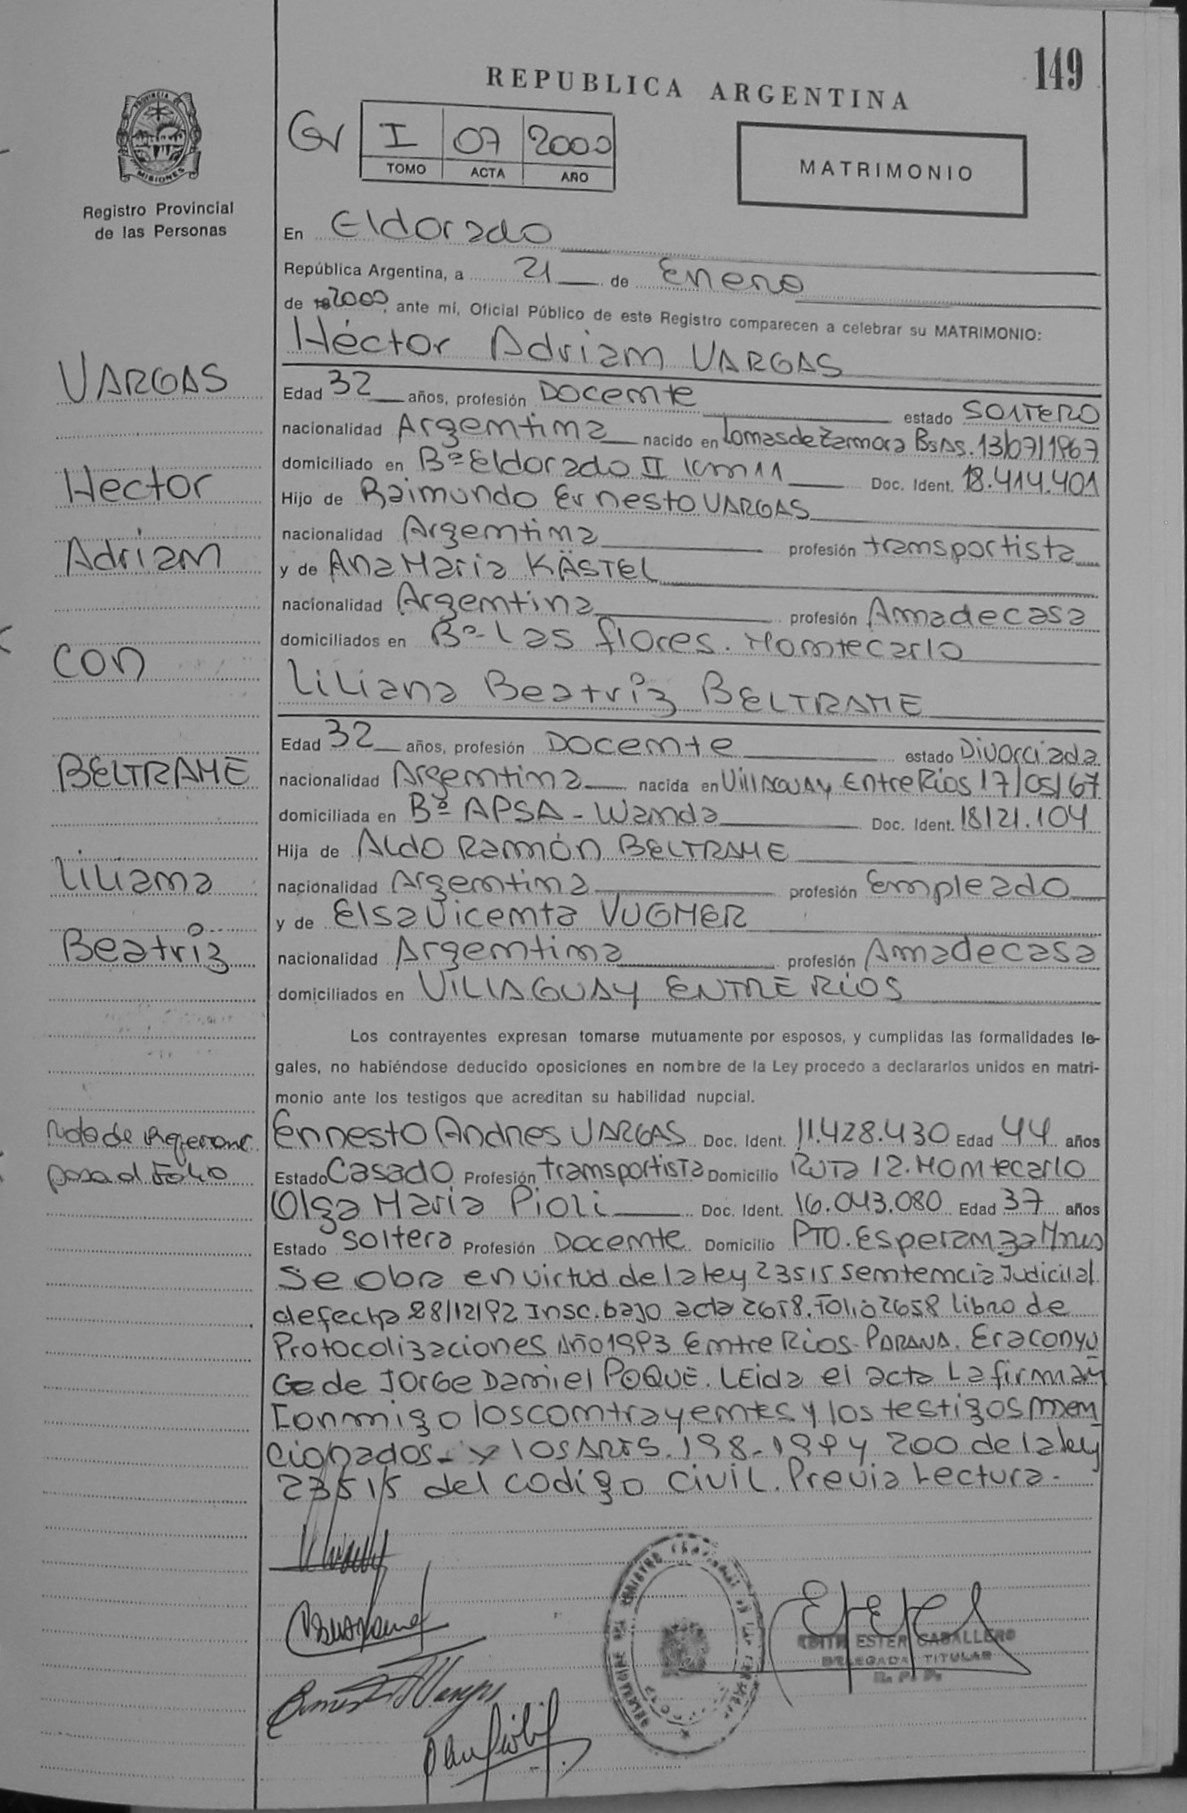 149
REPUBLICA ARGENTINA
PROVINCIA DE MISIONES
Registro Provincial
de las Personas
I 07 2000
TOMO ACTA AÑO
MATRIMONIO
En Eldorado
República Argentina, a 21 de Enero
de 2000, ante mi, Oficial Público de este Registro comparecen a celebrar su MATRIMONIO:
Héctor Adrian VARGAS
Edad 32 años, profesión Docente estado SOLTERO
nacionalidad Argentina nacido en Lomas de Zamora BsAs. 13/07/1967
domiciliado en Bº Eldorado II Km 11 Doc. Ident. 18.414.401
Hijo de Raimundo Ernesto VARGAS
nacionalidad Argentina profesión transportista
y de Ana Maria KÄSTEL
nacionalidad Argentina profesión Amadecasa
domiciliados en Bº Las flores. Montecarlo
Liliana Beatriz BELTRAME
Edad 32 años, profesión Docente estado Divorciada
nacionalidad Argentina nacida en Villaguay Entre Rios 17/05/67
domiciliada en Bº APSA - Wanda Doc. Ident. 18121.104
Hija de Aldo Ramón BELTRAME
nacionalidad Argentina profesión Empleado
y de Elsa Vicenta VUGMER
nacionalidad Argentina profesión Amadecasa
domiciliados en VILLAGUAY ENTRE RIOS
Los contrayentes expresan tomarse mutuamente por esposos, y cumplidas las formalidades le-
gales, no habiéndose deducido oposiciones en nombre de la Ley procedo a declararlos unidos en matri-
monio ante los testigos que acreditan su habilidad nupcial.
Ernesto Andres VARGAS Doc. Ident. 11.428.430 Edad 44 años
Estado Casado Profesión transportista Domicilio RUTA 12. Montecarlo
Olga Maria Pioli Doc. Ident. 16.043.080 Edad 37 años
Estado Soltera Profesión Docente Domicilio PTO. Esperanza Mnes
Se obra en virtud de la ley 23515 Sentencia Judicial
de fecha 28/12/92 Insc. bajo acta 2658. Folio 2658 libro de
Protocolizaciones Año 1993 Entre Rios-PARANA. Era conyu
Ge de JORGE Daniel POQUE. LEida el acta La firman
Conmigo los contrayentes y los testigos men
cionados - y los ARTS. 198-199 y 200 de la ley
23515 del codigo civil. Previa Lectura.
VARGAS
Hector
Adrian
con
BELTRAME
Liliana
Beatriz
Nota de
pasa al Fº 40
EDITH ESTER CABALLERO
DELEGADA TITULAR
R. P. P.